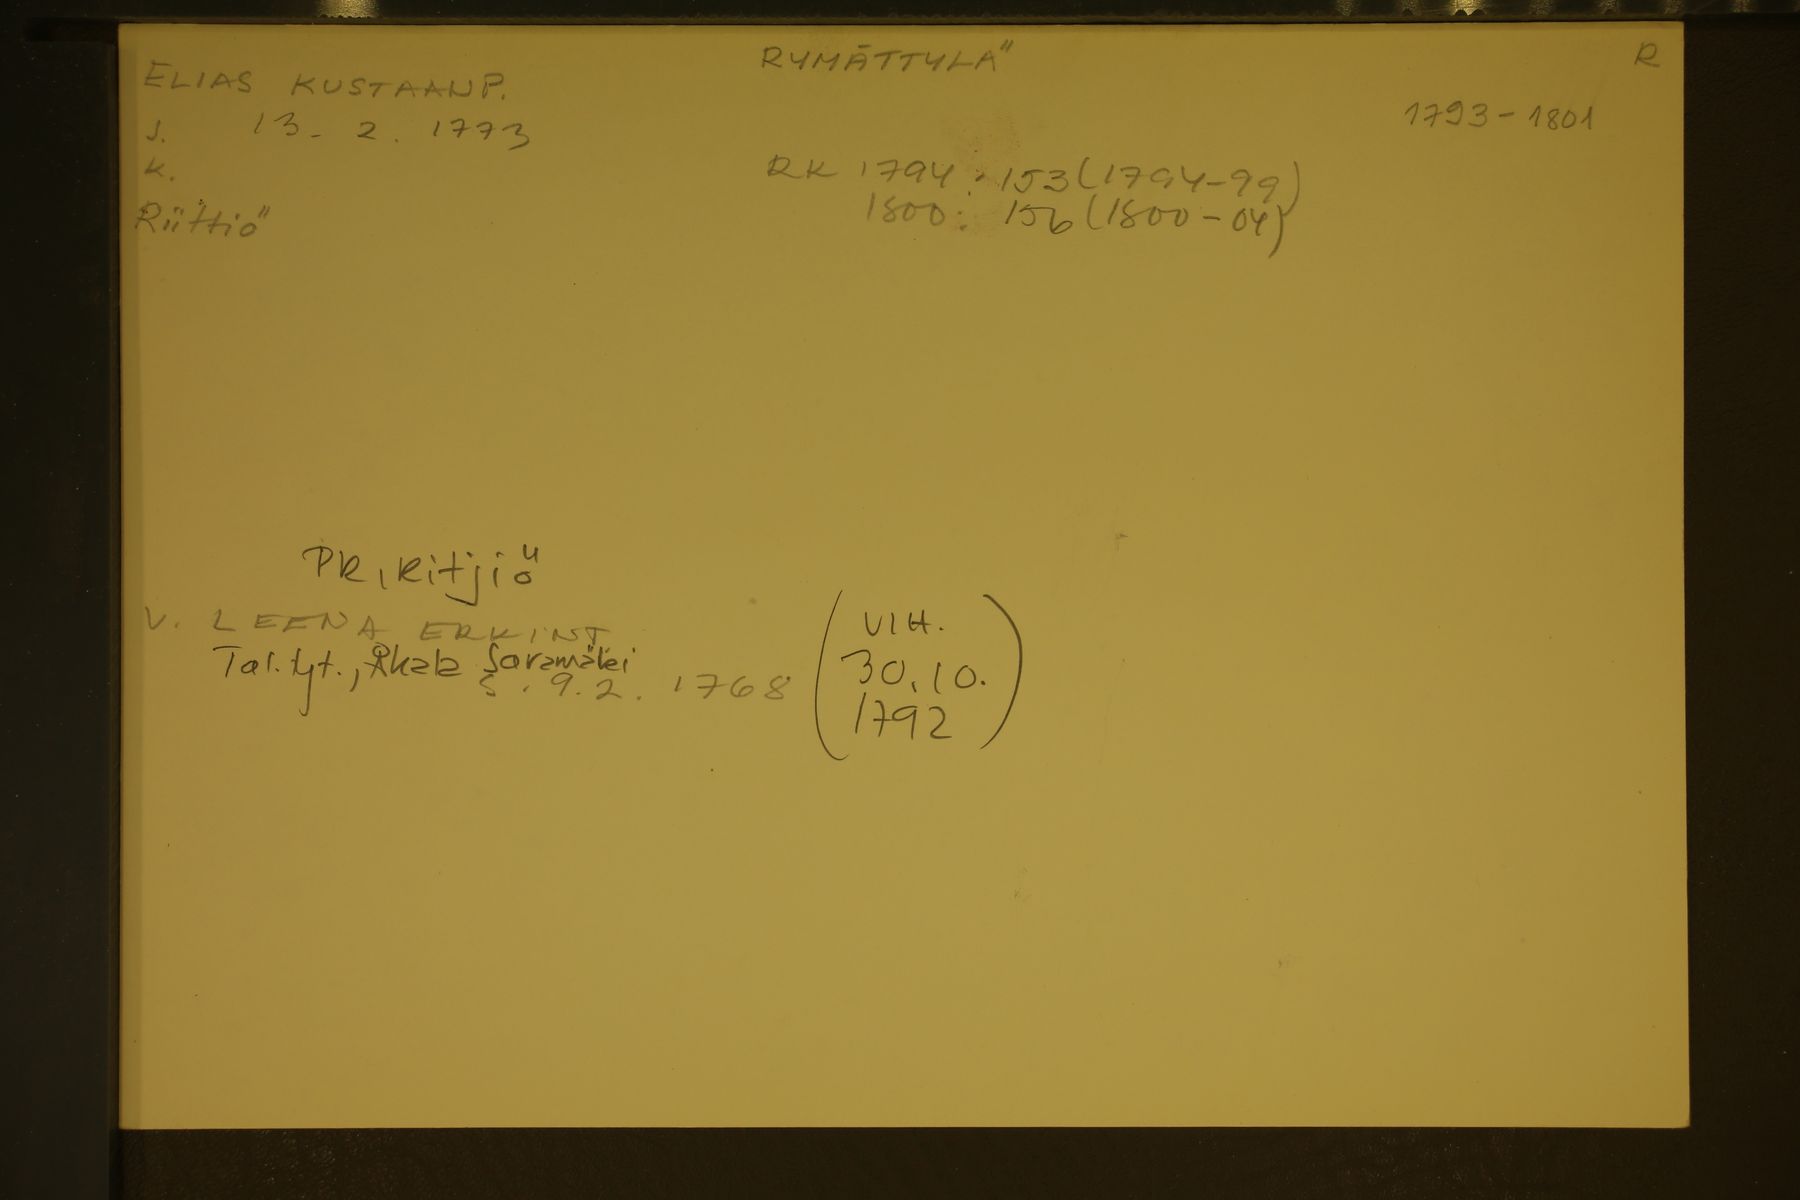 ELIAS KUSTAANP.
RYMÄTTYLÄ
R
S. 13. 2. 1773
1793-1801
K.
RK 1794: 153 (1794-99)
Riittiö
1800: 156 (1800-04)
PR, Ritjiö
V. LEENA ERKINT
Tal. tyt., Saramäki
S. 9. 2. 1768
(VIH.
30.10.
1792)